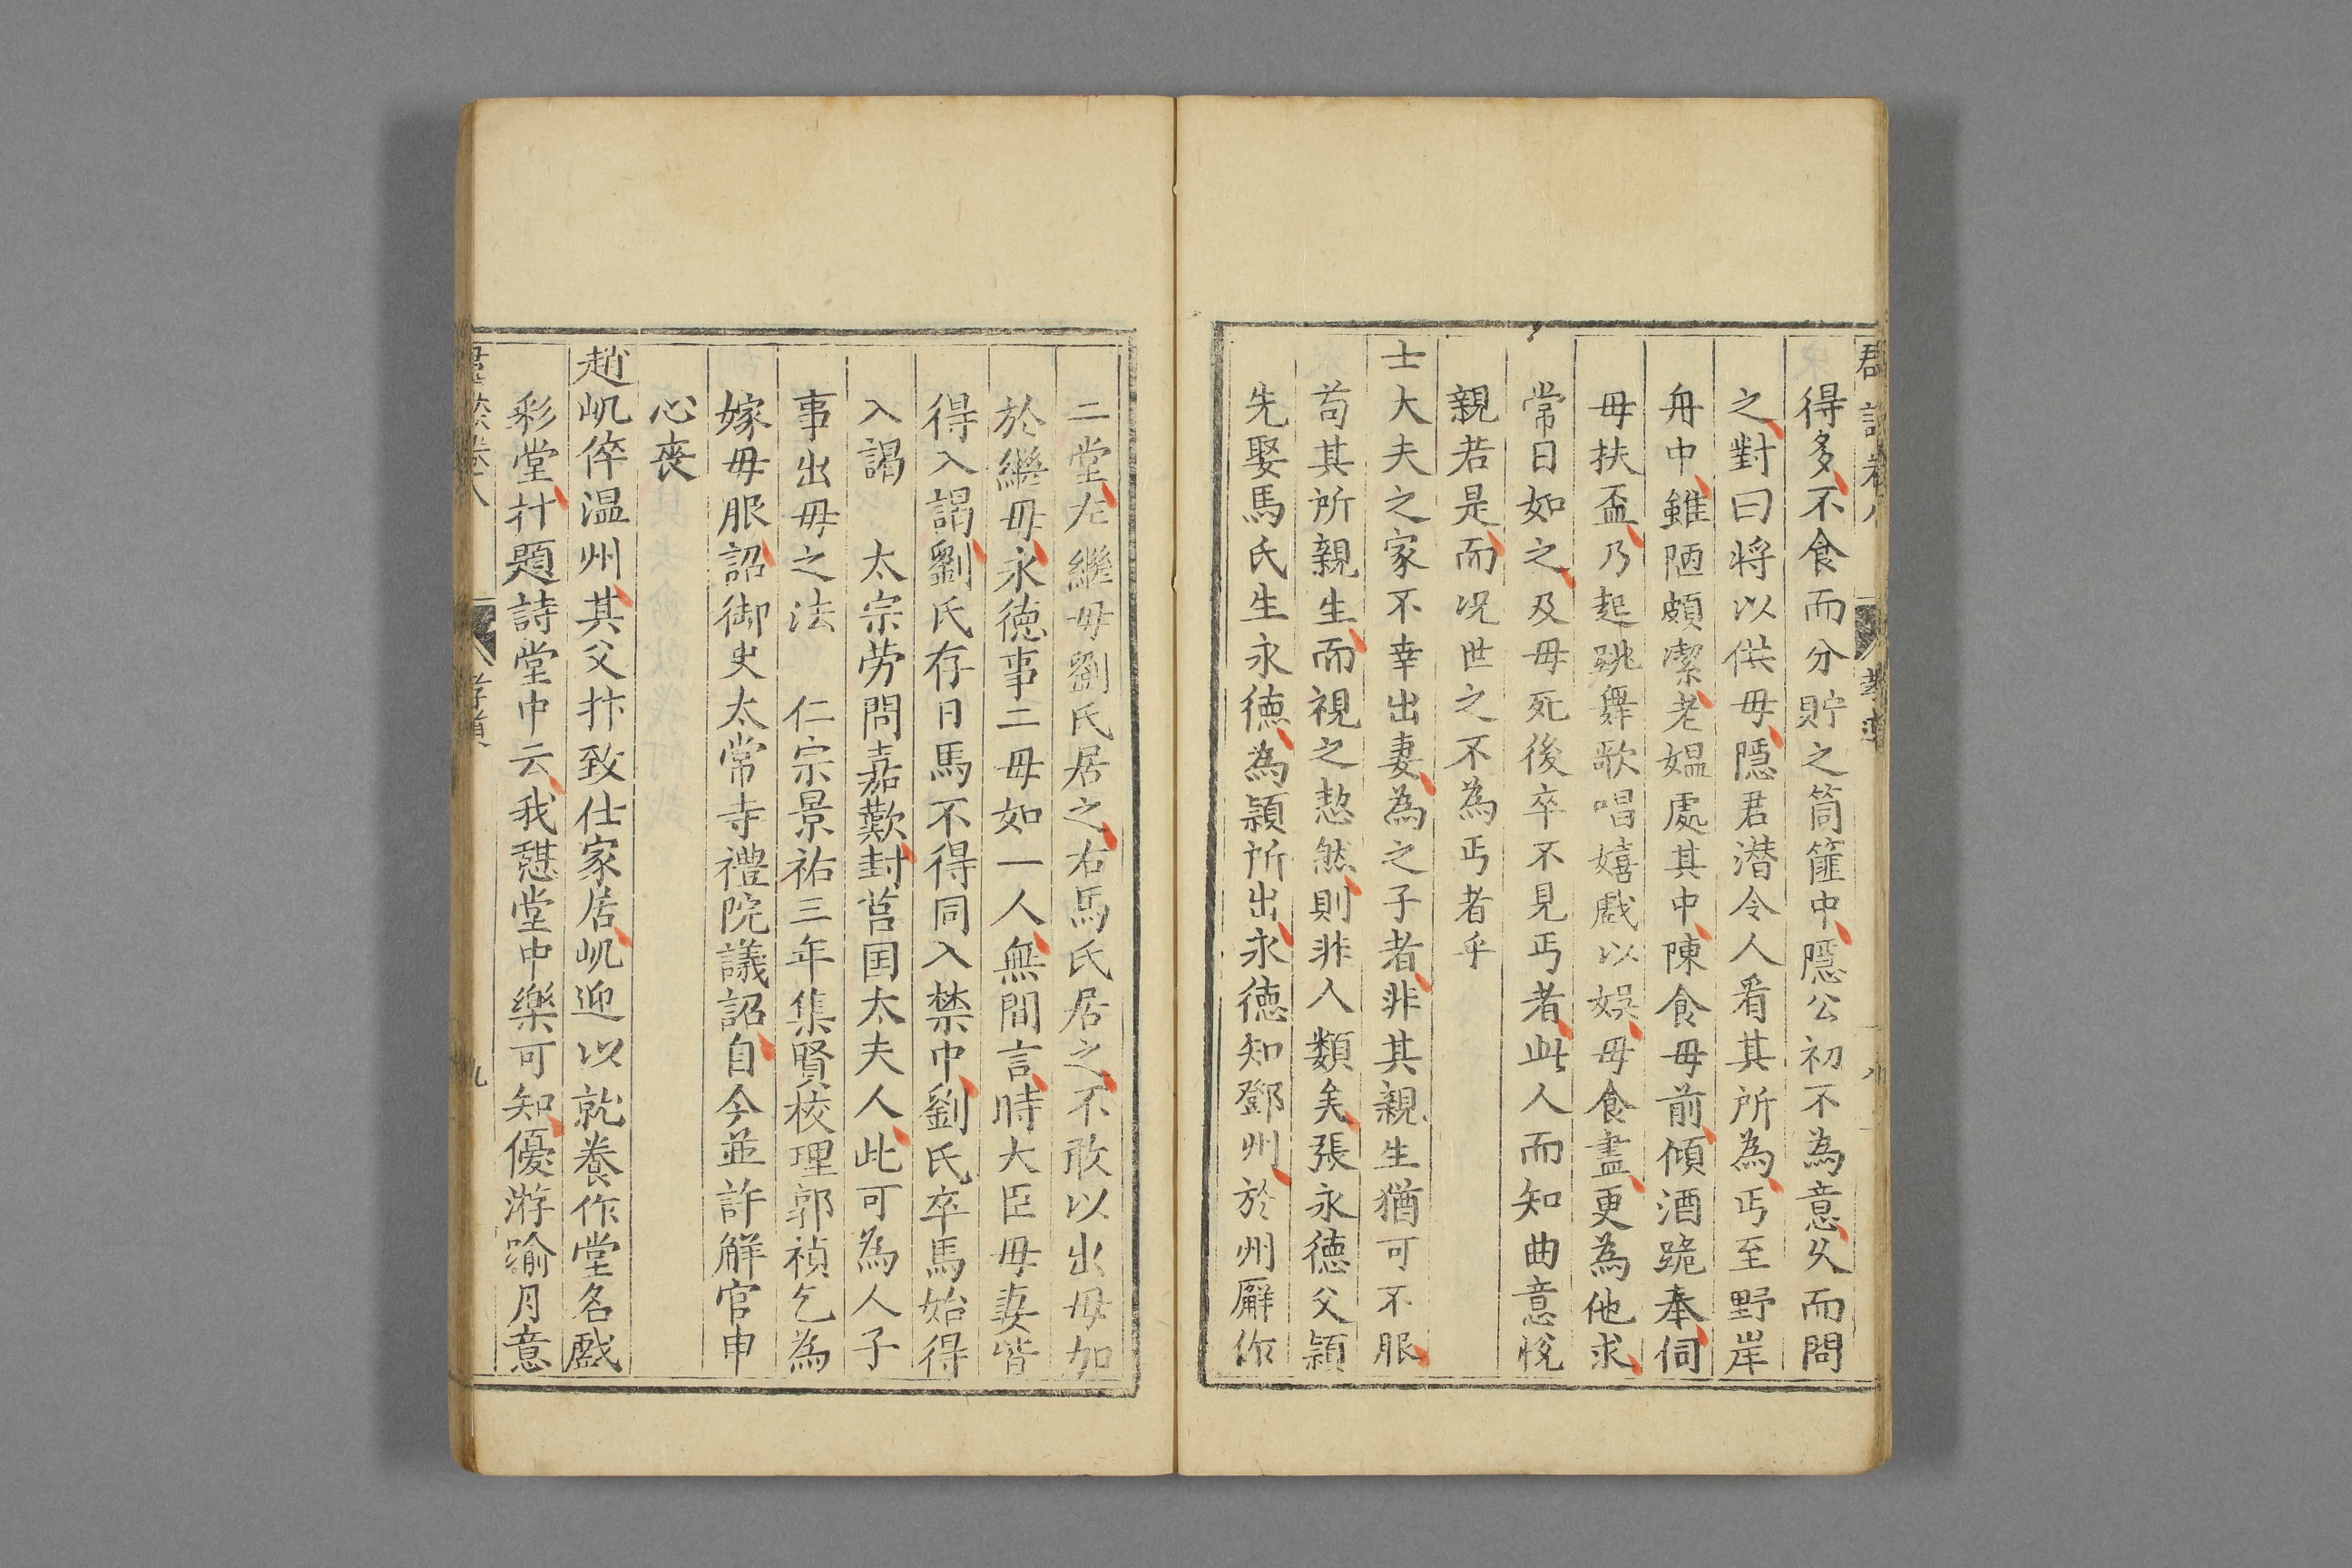 得多不食而分貯之筒篚中隱公初不為意乆而問
之對曰将以供毋隱君潜令人看其所為丐至野岸
舟中雖陋頗潔老媪處其中陳食毋前傾酒跪奉伺
毋扶盃乃起跳舞歌唱嬉戲以娛毋食盡更為他求
常日如之及毋死後卒不見丐者此人而知曲意悅
親若是而况世之不為丐者乎
士大夫之家不幸出妻為之子者非其親生猶可不服
苟其所親生而視之恝然則非人類矣張永德父潁
先娶馬氏生永德為潁所出永德知鄧州於州廨作
二堂左繼毋劉氏居之右馬氏居之不敢以出毋加
於繼毋永德事二毋如一人無間言時大臣毋妻皆
得入謁劉氏存日馬不得同入禁中劉氏卒馬始得
入謁　太宗劳問嘉歎封莒国太夫人此可為人子
事出毋之法　仁宗景祐三年集賢校理郭禎乞為
嫁毋服詔御史太常寺禮院議詔自今並許解官申
心喪
趙㞦倅温州其父抃致仕家居㞦迎以就養作堂名戲
彩堂抃題詩堂中云我憇堂中樂可知優游踰月意